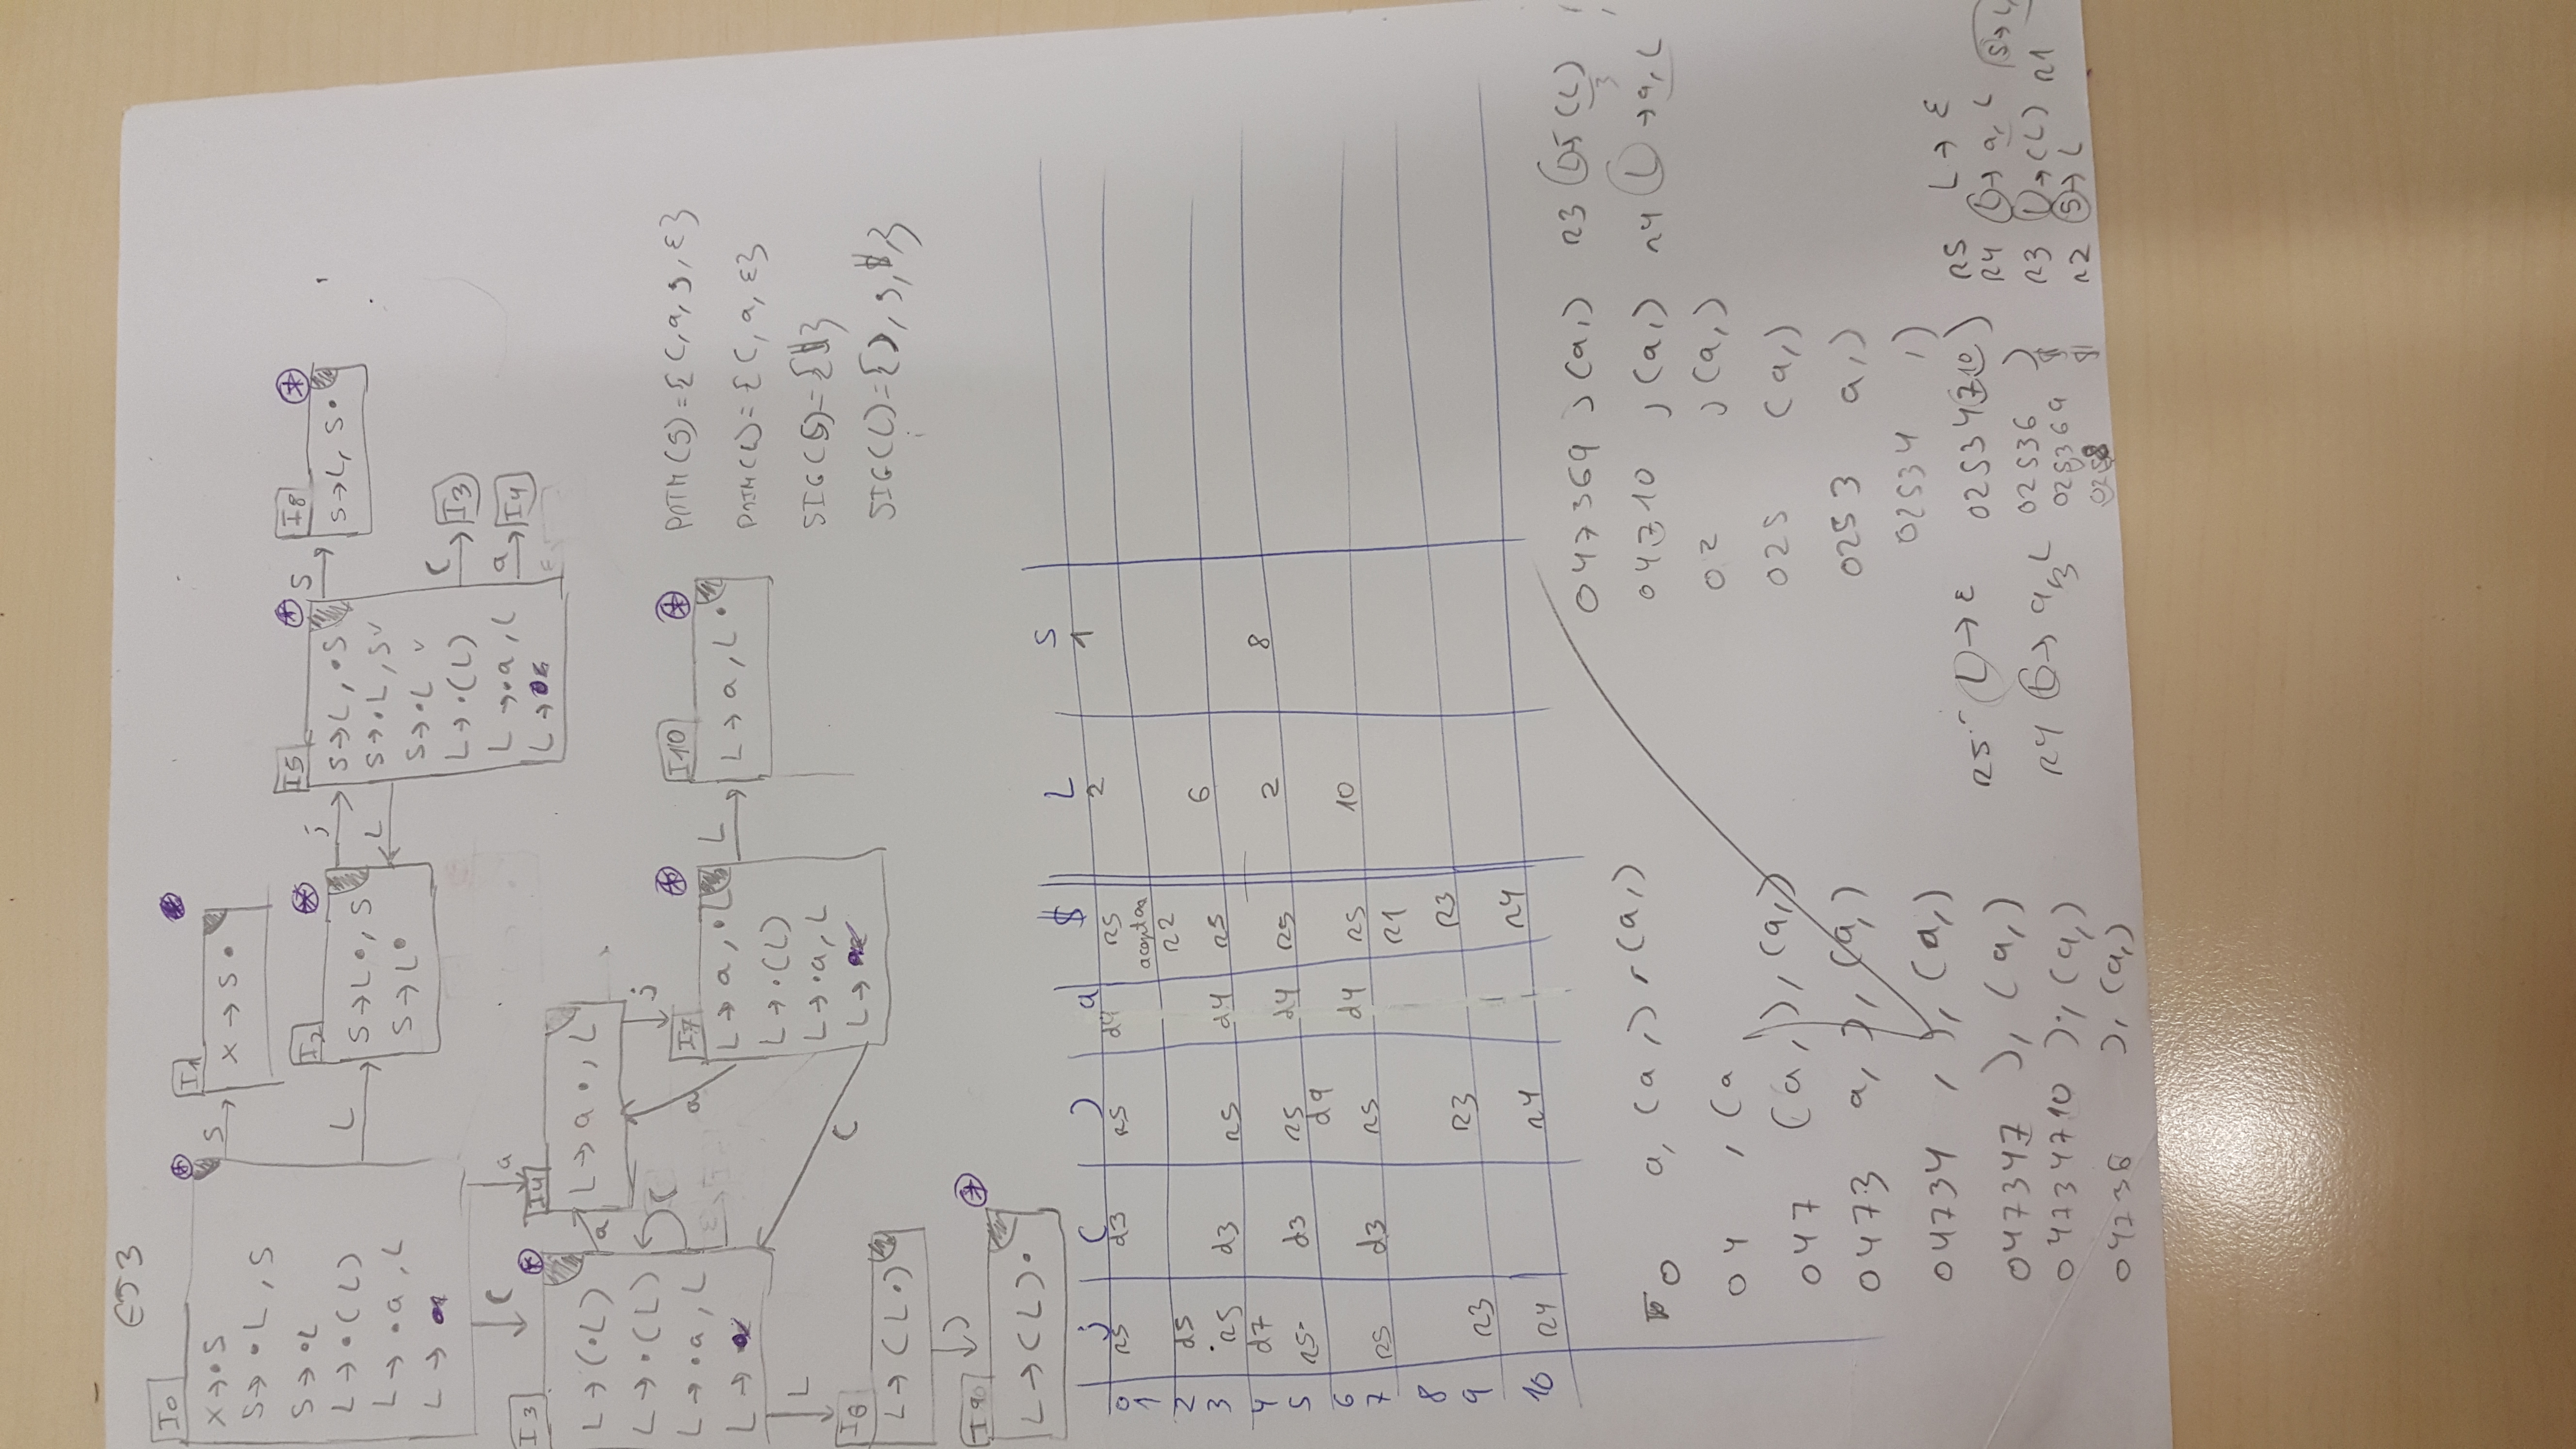 EJ3
I0
X → •S
S → •L , S
S → •L
L → •(L)
L → •a , L
L → •
S
I1
X → S •
L
I2
S → L •, S
S → L •
,
L
I5
S → L, •S
S → •L, S ✓
S → •L ✓
L → •(L)
L → •a, L
L → •
S
I8
S → L, S •
( I3
a I4
(
a
I3
L → (•L)
L → •(L)
L → •a, L
L → •
a
(
I4
L → a •, L
,
a
I7
L → a, •L
L → •(L)
L → •a, L
L → •
(
L
I10
L → a, L •
L
I6
L → (L•)
)
I9
L → (L) •
PRIM(S) = { (, a, , , ε }
PRIM(L) = { (, a, ε }
SIG(S) = { $ }
SIG(L) = { ), , , $ }
, ( ) a $ L S
0 R5 d3 R5 d4 R5 2 1
1 aceptar
2 d5 R2
3 R5 d3 R5 d4 R5 6
4 d7
5 R5 d3 R5 d4 R5 2 8
6 d9
7 R5 d3 R5 d4 R5 10
8 R1
9 R3 R3 R3
10 R4 R4 R4
0 a, (a,) , (a,)
04 , (a
047 (a,), (a,)
0473 a, ), (a,)
04734 , ), (a,)
047347 ), (a,) R5 L → ε
04734710 ), (a,) R4 L → a, L 3
04736 ), (a,)
047369 , (a,) R3 L → (L) 3
04710 , (a,) R4 L → a, L
02 , (a,)
025 (a,)
0253 a,)
02534 ,)
02534710 ) R5 L → ε
R4 L → a, L
02536 ) R3 L → (L) R1
025369 $ R2 S → L
0258 $